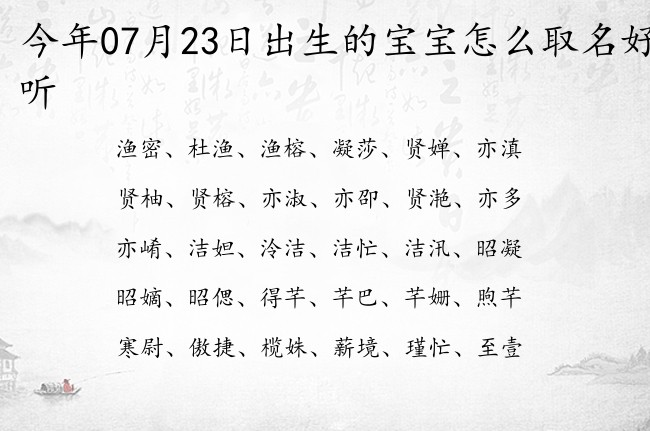 今年07月23日出生的宝宝怎么取名好
听
渔密、杜渔、渔榕、凝莎、贤婵、亦滇
贤柚、贤榕、亦淑、亦卲、贤滟、亦多
亦崤、洁妲、泠洁、洁忙、洁汛、昭凝
昭嫡、昭偲、得芊、芊巴、芊姗、煦芊
寒尉、傲捷、榄姝、薪境、瑾忙、至壹